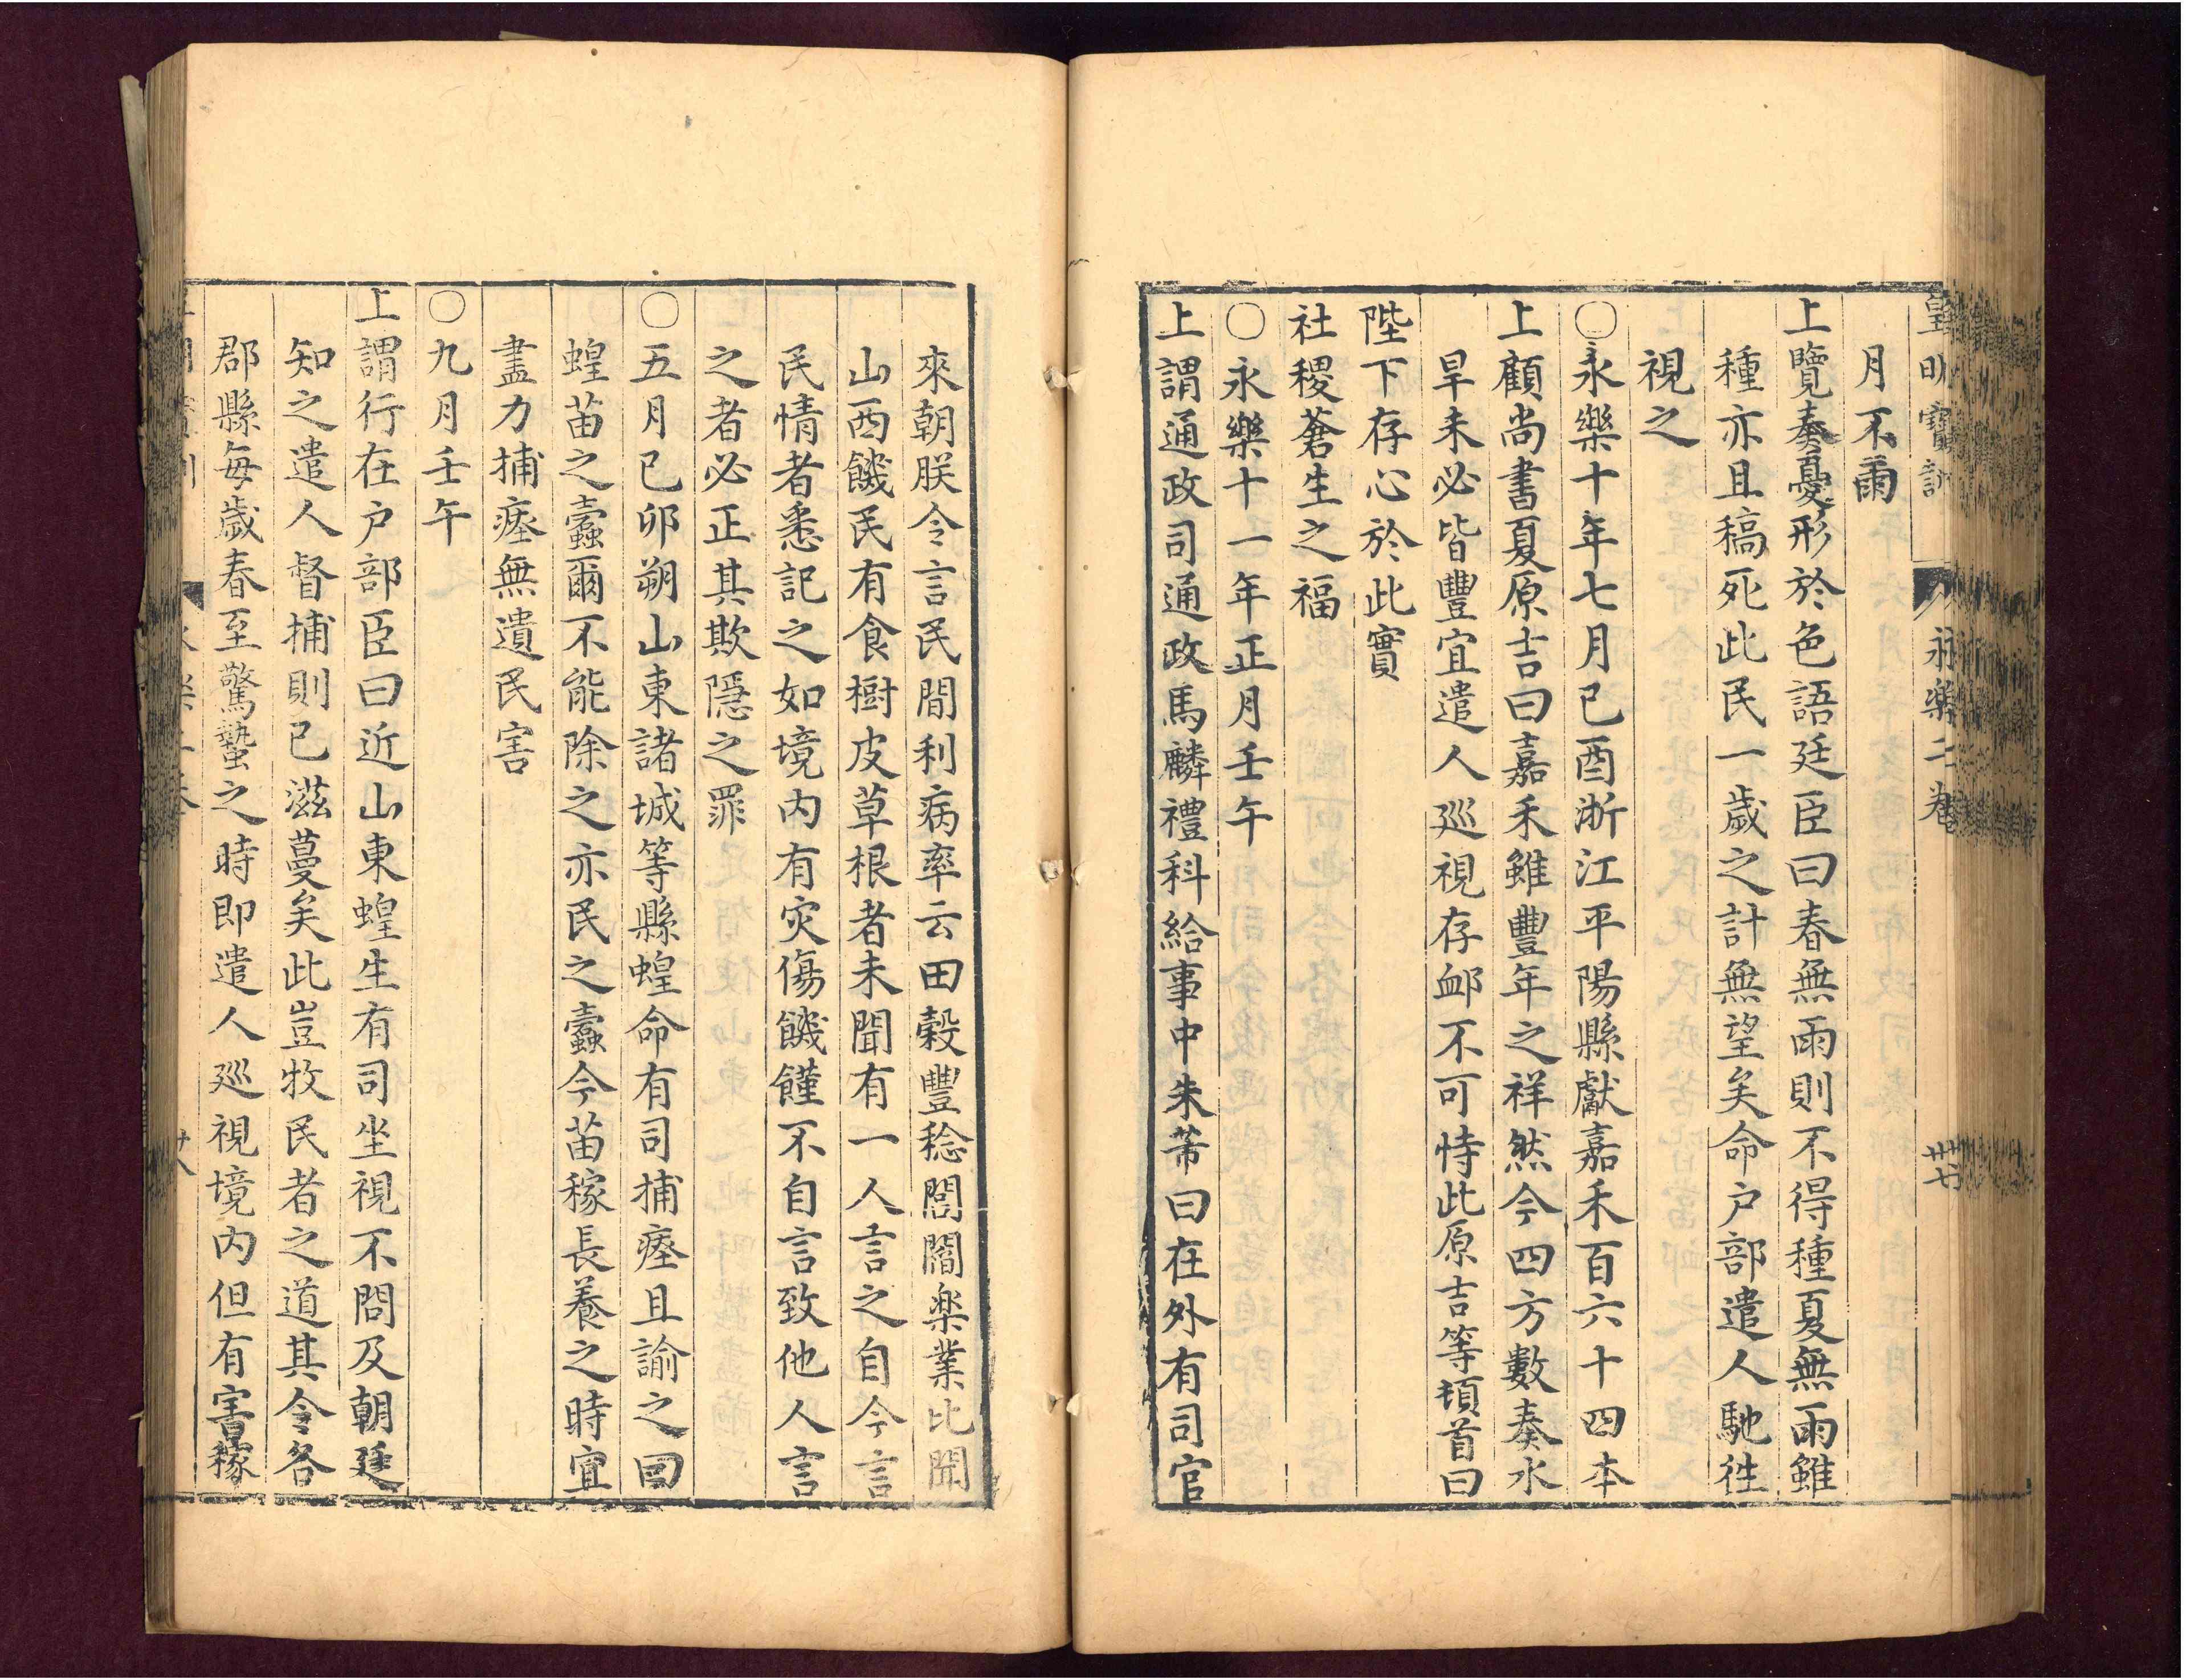 皇明寶訓 永樂二卷 卅七
月不雨
上覽奏憂形於色語廷臣曰春無雨則不得種夏無雨雖
種亦且稿死此民一歲之計無望矣命户部遣人馳徃
視之
〇永樂十年七月已酉浙江平陽縣獻嘉禾百六十四本
上顧尚書夏原吉曰嘉禾雖豐年之祥然今四方數奏水
旱未必皆豐宜遣人廵視存衈不可恃此原吉等頓首曰
陛下存心於此實
社稷蒼生之福
〇永樂十一年正月壬午
上謂通政司通政馬麟禮科給事中朱芾曰在外有司官
來朝朕令言民間利病率云田穀豐稔閭閻楽業比聞
山西饑民有食樹皮草根者未聞有一人言之自今言
民情者悉記之如境内有灾傷饑饉不自言致他人言
之者必正其欺隱之罪
〇五月已卯朔山東諸城等縣蝗命有司捕瘞且諭之曰
蝗苗之蠹爾不能除之亦民之蠹今苗稼長養之時宜
盡力捕瘞無遺民害
〇九月壬午
上謂行在户部臣曰近山東蝗生有司坐視不問及朝廷
知之遣人督捕則已滋蔓矣此豈牧民者之道其令各
郡縣每歲春至驚蟄之時即遣人廵視境内但有害稼